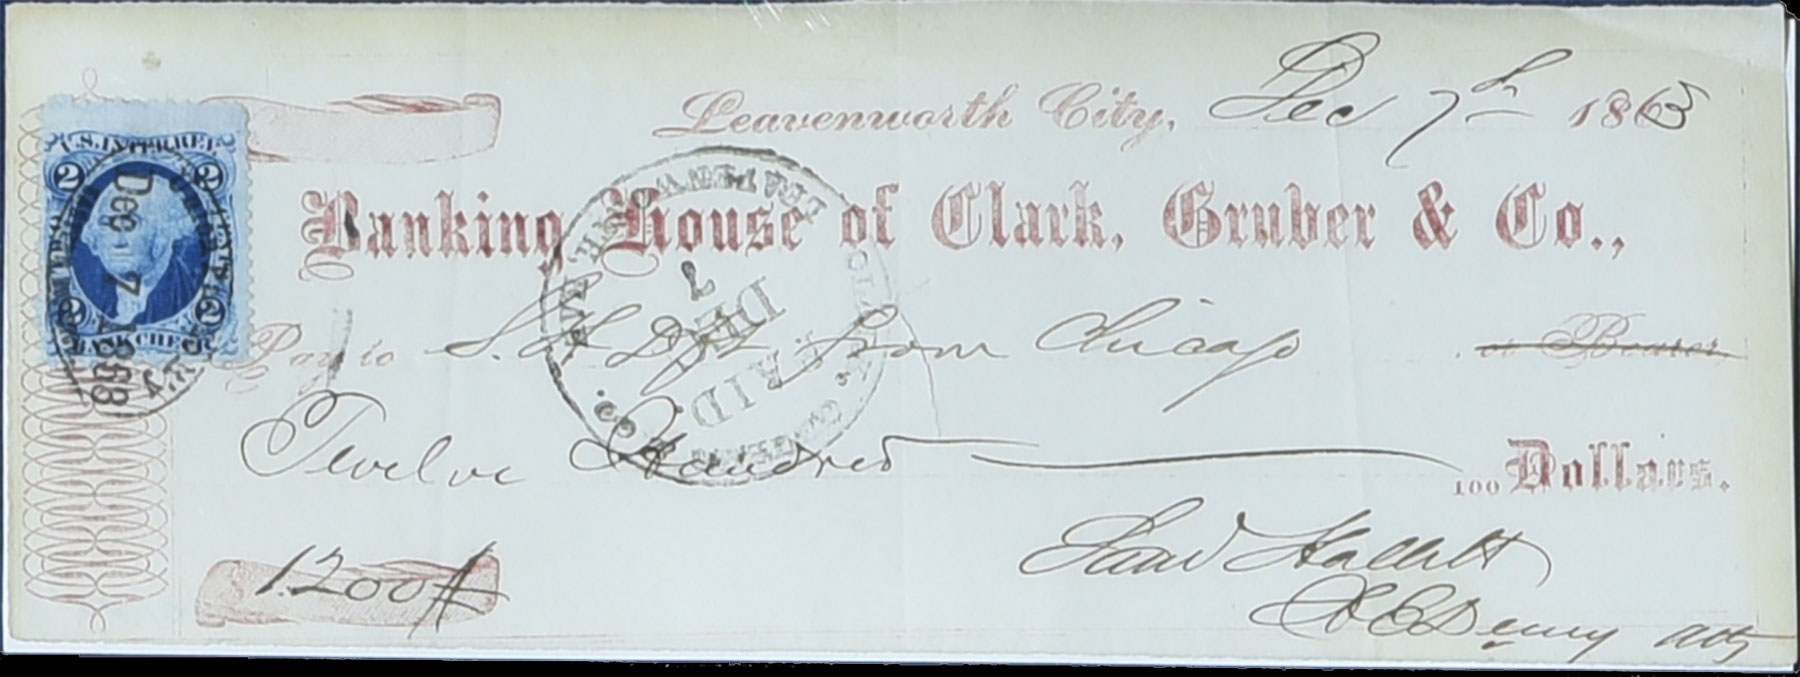 Leavenworth City, Dec 7th 1863
Banking House of Clark, Gruber & Co.,
Pay to S. H. from Chicago or Bearer
Twelve Hundred 100 Dollars.
1200
Saml Hallett
Denny atty
U.S. INTER. REV.
2 2
2 2
BANK CHECK
DEC 7 1863
LEAVENWORTH
DEC 7
PAID